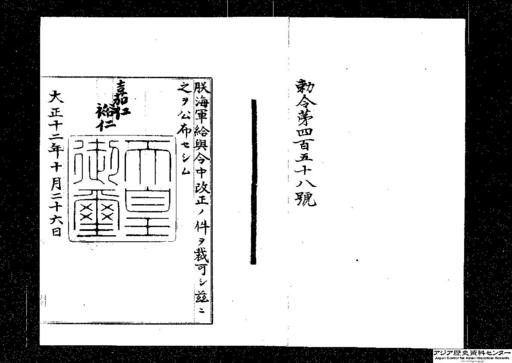 勅令第四百五十八號
朕海軍給與令中改正ノ件ヲ裁可シ茲ニ
之ヲ公布セシム
嘉仁
裕仁
天皇
御璽
大正十二年十月二十六日
アジア歴史資料センター
Japan Center for Asian Historical Records